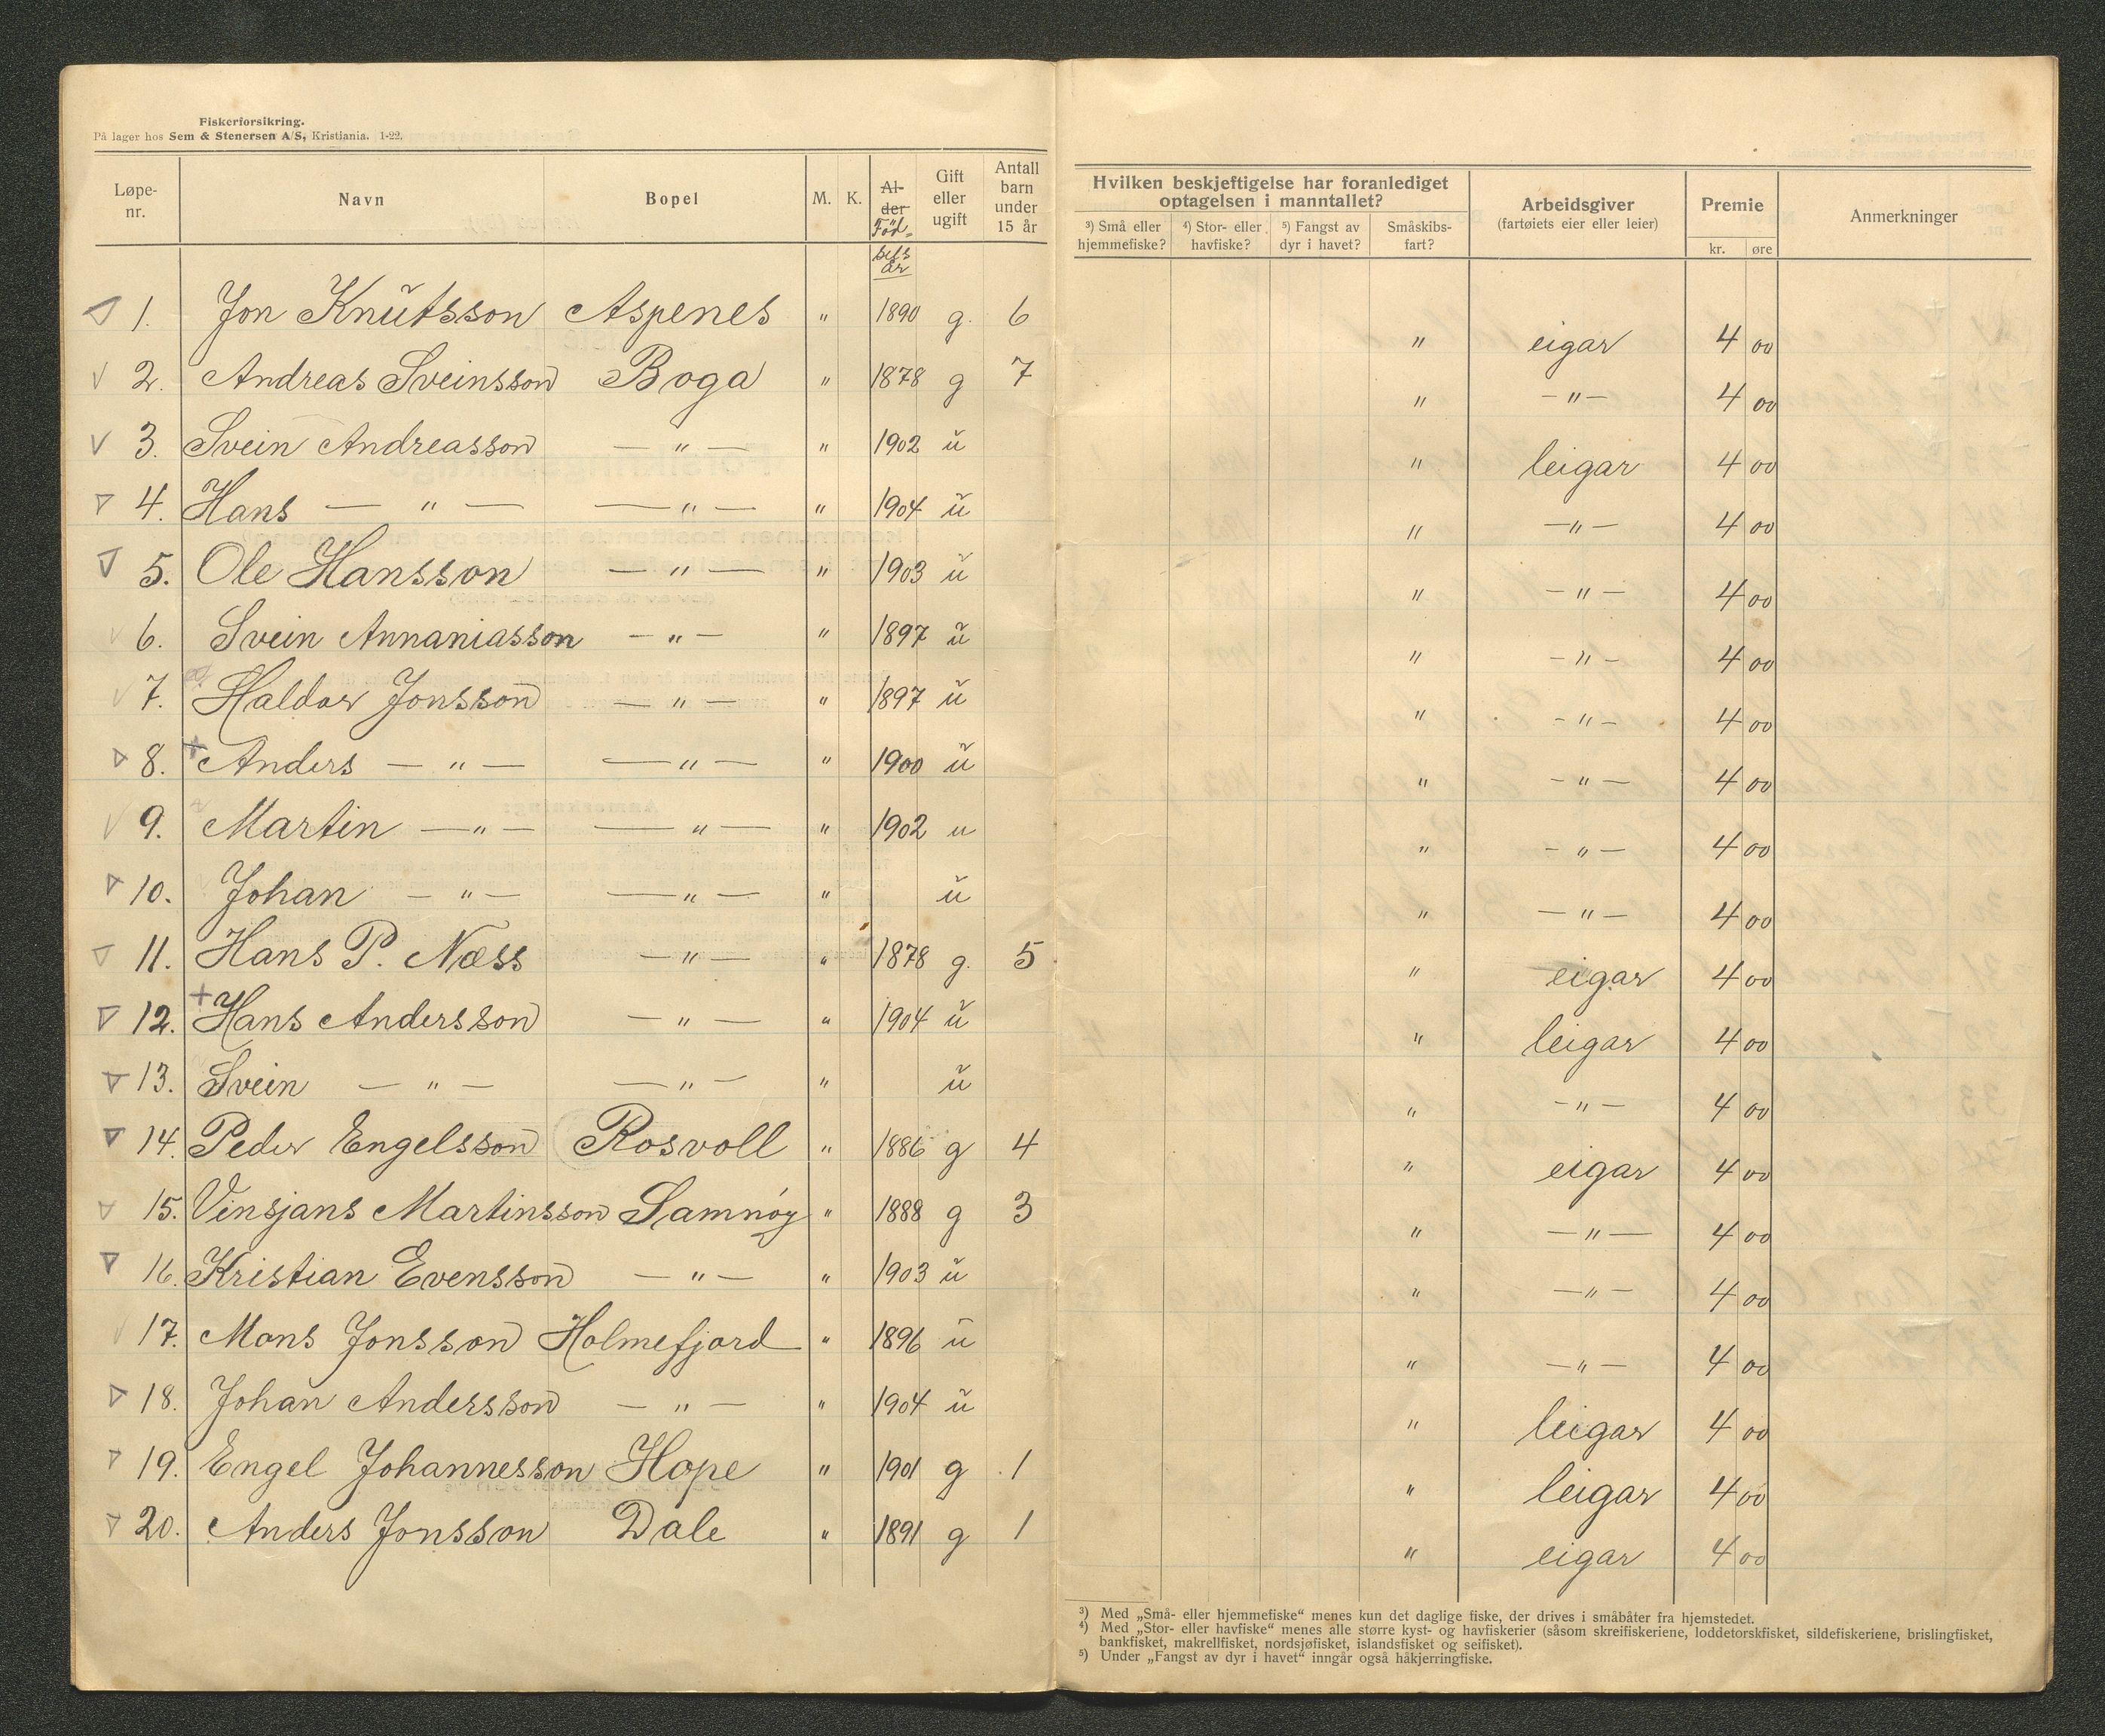 Fiskerforsikring.
På lager hos Sem & Stenersen A/S, Kristiania. 1-22.
Løpe-nr. Navn Bopel M. K. Al-der Föd-sels år Gift eller ugift Antall barn under 15 år
1. Jon Knŭtsson Aspenes " 1890 g. 6
2. Andreas Sveinsson Boga " 1878 g 7
3. Svein Andreasson — " — " 1902 ŭ
4. Hans — " — — " — " 1904 ŭ
5. Ole Hansson — " — " 1903 ŭ
6. Svein Annaniasson — " — " 1897 ŭ
7. Haldor Jonsson — " — " 1897 ŭ
8. + Anders — " — — " — " 1900 ŭ
9. Martin — " — — " — " 1902 u
10. Johan — " — — " — " ŭ
11. Hans P. Næss — " — " 1878 g. 5
12. + Hans Andersson — " — " 1904 ŭ
13. Svein — " — — " — " ŭ
14. Peder Engelsson Rosvoll " 1886 g 4
15. Vinsjans Martinsson Samnøy " 1888 g 3
16. Kristian Evensson — " — " 1903 ŭ
17. Mons Jonsson Holmefjord " 1896 ŭ
18. Johan Andersson — " — " 1904 ŭ
19. Engel Johannesson Hope " 1901 g 1
20. Anders Jonsson Dale " 1891 g 1
Hvilken beskjeftigelse har foranlediget optagelsen i manntallet? Arbeidsgiver (fartøiets eier eller leier) Premie Anmerkninger
3) Små eller hjemmefiske? 4) Stor- eller havfiske? 5) Fangst av dyr i havet? Småskibs-fart? kr. øre
" eigar 4 00
" — " — 4 00
" leigar 4 00
" — " — 4 00
" — " — 4 00
" — " — 4 00
" — " — 4 00
" — " — 4 00
" — " — 4 00
" — " — 4 00
" eigar 4 00
" leigar 4 00
" — " — 4 00
" eigar 4 00
" — " — 4 00
" — " — 4 00
" — " — 4 00
" leigar 4 00
" leigar 4 00
" eigar 4 00
3) Med „Små- eller hjemmefiske“ menes kun det daglige fiske, der drives i småbåter fra hjemstedet.
4) Med „Stor- eller havfiske“ menes alle større kyst- og havfiskerier (såsom skreifiskeriene, loddetorskfisket, sildefiskeriene, brislingfisket,
bankfisket, makrellfisket, nordsjøfisket, islandsfisket og seifisket).
5) Under „Fangst av dyr i havet“ inngår også håkjerringfiske.